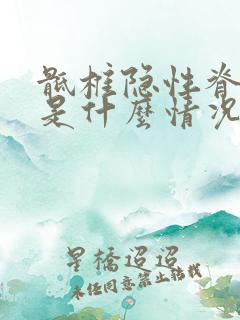 骶椎隐性脊
是什麼情况
星橋迢迢
未经同意禁止转载